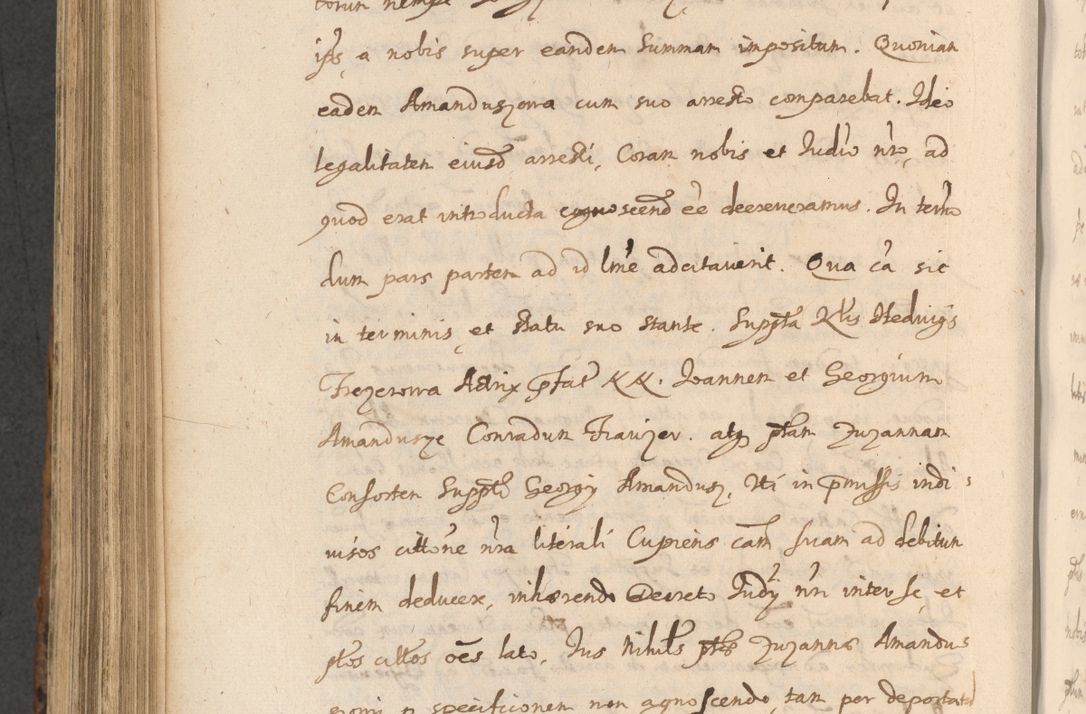 ips, a nobis super eandem Summam impositum. Quoniam
eadem Amanduszowa cum suo arresto comparebat. Ideo
legalitatem eiusd arresti, Coram nobis et Iudio nro, ad
quod erat introducta cognoscend ee decreveramus. In term
dum pars partem ad id lme adcitaverit. Qua ca sic
in terminis, et statu suo stante. Suppta Hedvigis
Frezerowa Actrix pfat KK. Ioannem et Georgium
Amandusze Conradum Fraiizer. atq ptam Zuzannam
Consortem Supptd Georgy Amandusz, Uti in pmissis indi
visos cittone nra literali Cupiens cam suam ad debitum
finem deducere, inhaerendo Decreto Iudy nri inter se, et
ptos cittos oes lato, Ius Nihils ptae Zuzannae Amandus
specificionem non agnoscendo, tam per deportata